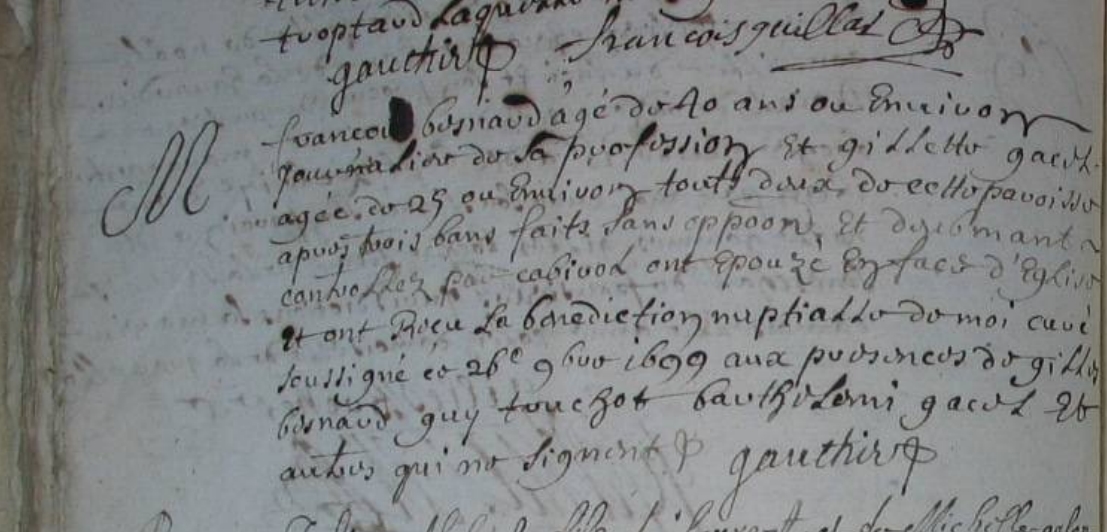 françois guillas
gauthier
M
francois besnard agé de 40 ans ou Environ
journalier de sa profession Et gillette gacel
agée de 25 ou Environ touts deux de cette paroisse
apres trois bans faits sans oppoon Et deubmant
controllez par cabirol ont Epouzé En face d'Eglise
et ont Receu la benediction nuptialle de moi curé
soussigné ce 26e 9bre 1699 aux presences de gilles
besnard guy touchet barthelemi gacel Et
autres qui ne signent gauthier